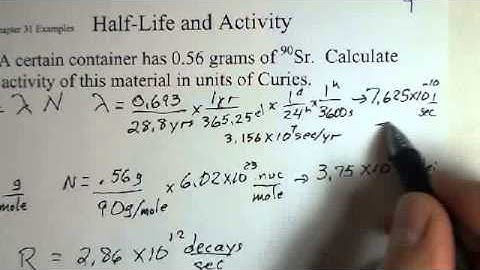 Chapter 31 Examples Half-Life and Activity
A certain container has 0.56 grams of ⁹⁰Sr. Calculate
activity of this material in units of Curies.
= λ N λ = 0.693 / 28.8 yrs × 1 yr / 365.25 d × 1 d / 24 h × 1 h / 3600 s → 7.625 × 10⁻¹⁰ 1 / sec
3.156 × 10⁷ sec/yr
g / mole N = .56 g / 90 g/mole × 6.02 × 10²³ nuc / mole → 3.75 × 10
R = 2.86 × 10¹² decays / sec